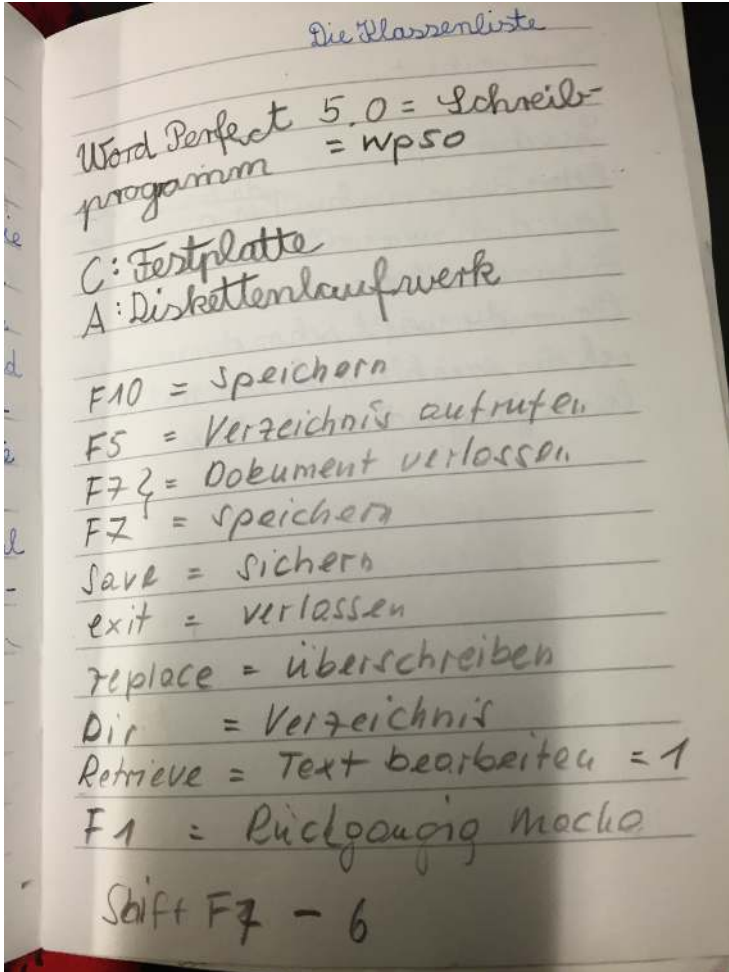 Die Klassenliste
Word Perfect 5.0 = Schreib-
programm = Wp50
C: Festplatte
A: Diskettenlaufwerk
F10 = speichern
F5 = Verzeichnis aufrufen
F7 } = Dokument verlassen
F7 = speichern
Save = sichern
exit = verlassen
replace = überschreiben
Dir = Verzeichnis
Retrieve = Text bearbeiten = 1
F1 = Rückgängig mache
Shift F7 - 6